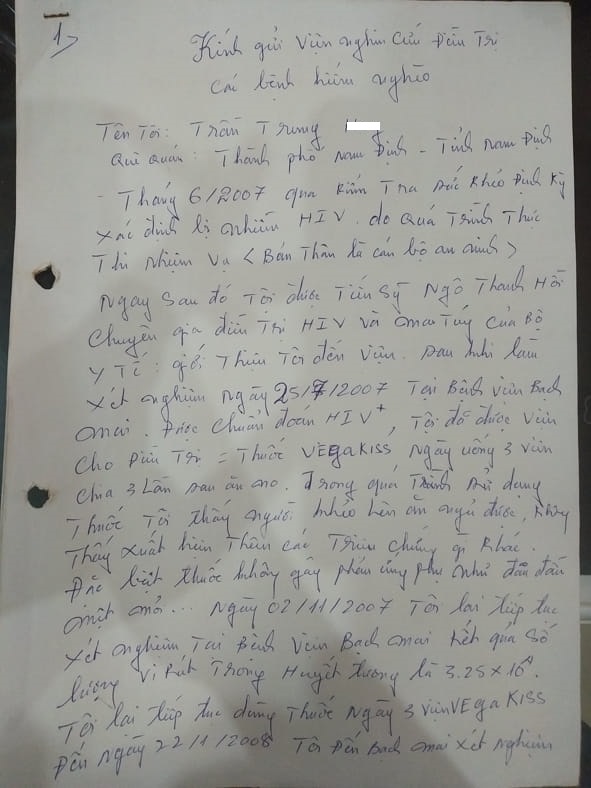 1>
Kính gửi Viện nghiên cứu Điều Trị
các bệnh hiểm nghèo
Tên Tôi: Trần Trung
Quê quán: Thành phố Nam Định - Tỉnh Nam Định
- Tháng 6/2007 qua kiểm Tra sức khỏe Định Kỳ
xác định bị nhiễm HIV. do Quá Trình Thực
Thi nhiệm vụ <Bản Thân là cán bộ an ninh>
Ngay sau đó Tôi được Tiến Sỹ Ngô Thanh Hồi
Chuyên gia điều Trị HIV và ma Túy của Bộ
Y Tế: giới Thiệu Tôi đến viện. sau khi làm
xét nghiệm ngày 25/7/2007 Tại Bệnh viện Bạch
mai. Được chuẩn đoán HIV+, Tôi đã được Viện
Cho Điều Trị = Thuốc VEgaKISS Ngày uống 3 viên
Chia 3 Lần sau ăn no. Trong quá Trình sử dụng
Thuốc Tôi Thấy người khỏe lên ăn ngủ được, không
Thấy xuất hiện Thêm các Triệu chứng gì Khác.
Đặc biệt thuốc không gây phản ứng phụ như đau đầu
mệt mỏi... Ngày 02/11/2007 Tôi lại tiếp tục
xét nghiệm Tại Bệnh Viện Bạch mai kết quả Số
lượng Vi Rút Trong Huyết Tương là 3.25x10⁴.
Tôi lại tiếp tục dùng Thuốc Ngày 3 viên VEga KISS
Đến ngày 22/1/2008 Tôi Đến Bạch mai xét nghiệm